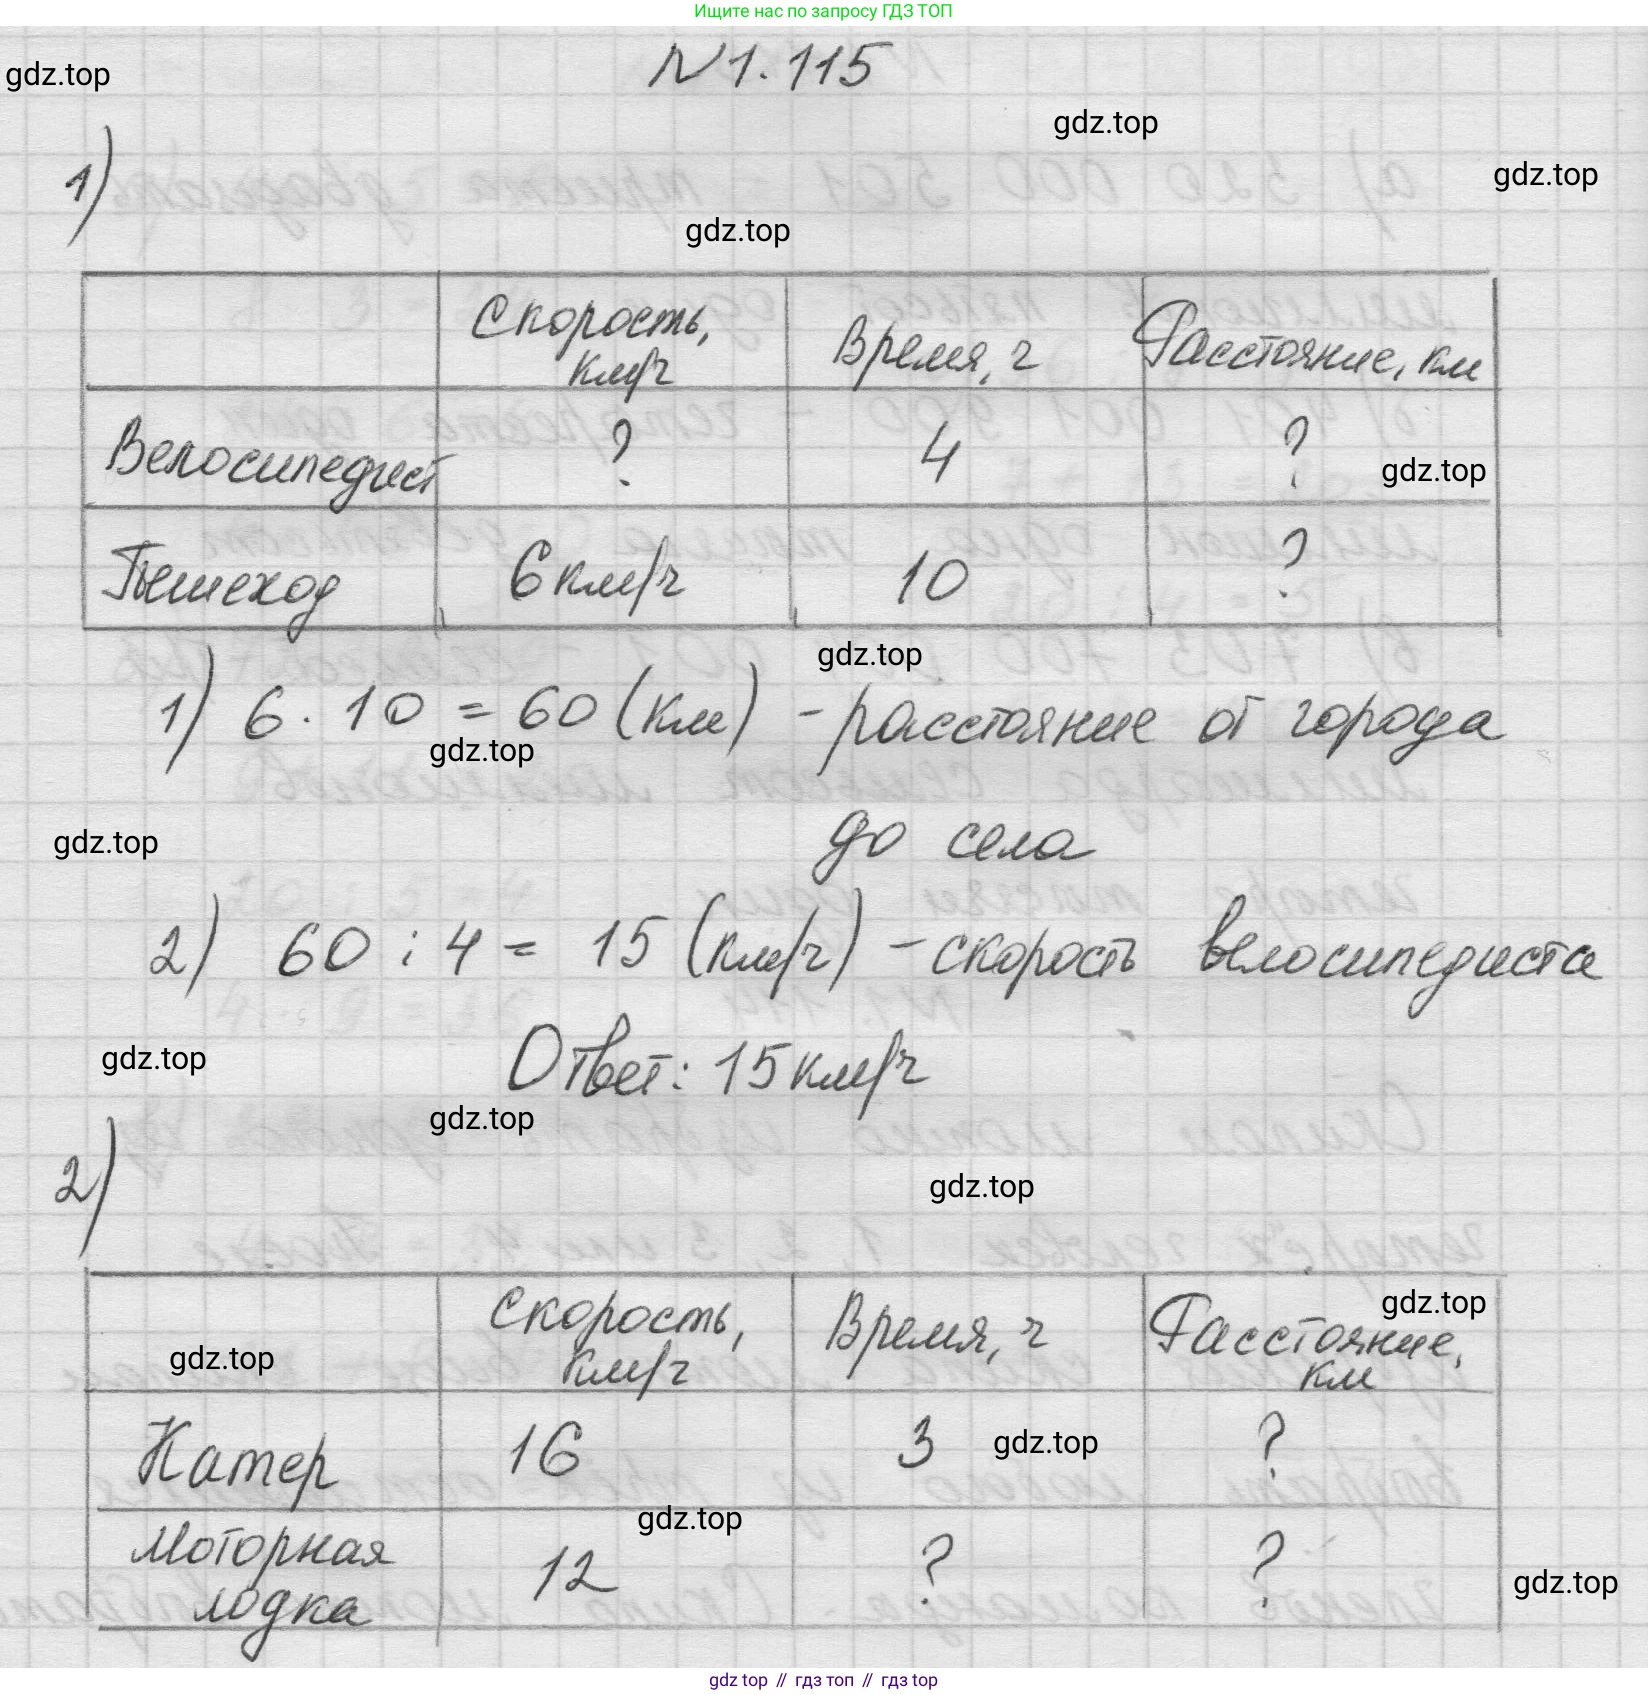 Ищите нас по запросу ГДЗ ТОП
N 1.115
gdz.top
gdz.top
1)
gdz.top
gdz.top
Скорость, км/ч
Время, ч
Расстояние, км
Велосипедист ? 4 ?
gdz.top
Пешеход 6 км/ч 10 ?
gdz.top
1) 6 · 10 = 60 (км) - расстояние от города
gdz.top
до села
gdz.top
2) 60 : 4 = 15 (км/ч) - скорость велосипедиста
Ответ: 15 км/ч
gdz.top
gdz.top
2)
gdz.top
Скорость, км/ч
Время, ч
Расстояние, км
gdz.top
gdz.top
Катер 16 3 ?
gdz.top
gdz.top
Моторная лодка 12 ? ?
gdz.top
gdz top // гдз топ // гдз top